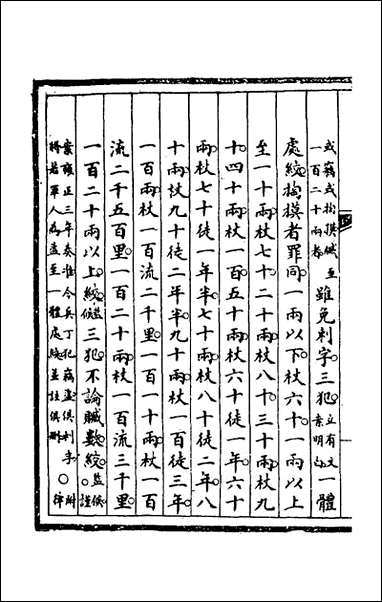 或竊或掏摸贓至一百二十兩者雖免刺字三犯立有文案明白一體
處絞掏摸者罪同一兩以下杖六十一兩以上
至一十兩杖七十二十兩杖八十三十兩杖九
十四十兩杖一百五十兩杖六十徒一年六十
兩杖七十徒一年半七十兩杖八十徒二年八
十兩杖九十徒二年半九十兩杖一百徒三年
一百兩杖一百流二千里一百一十兩杖一百
流二千五百里一百二十兩杖一百流三千里
一百二十兩以上絞監候三犯不論贓數絞監候。謹
案雍正三年奏准今兵丁犯竊盜俱刺字附
將若軍人為盜至一體處絞並註俱刪○律